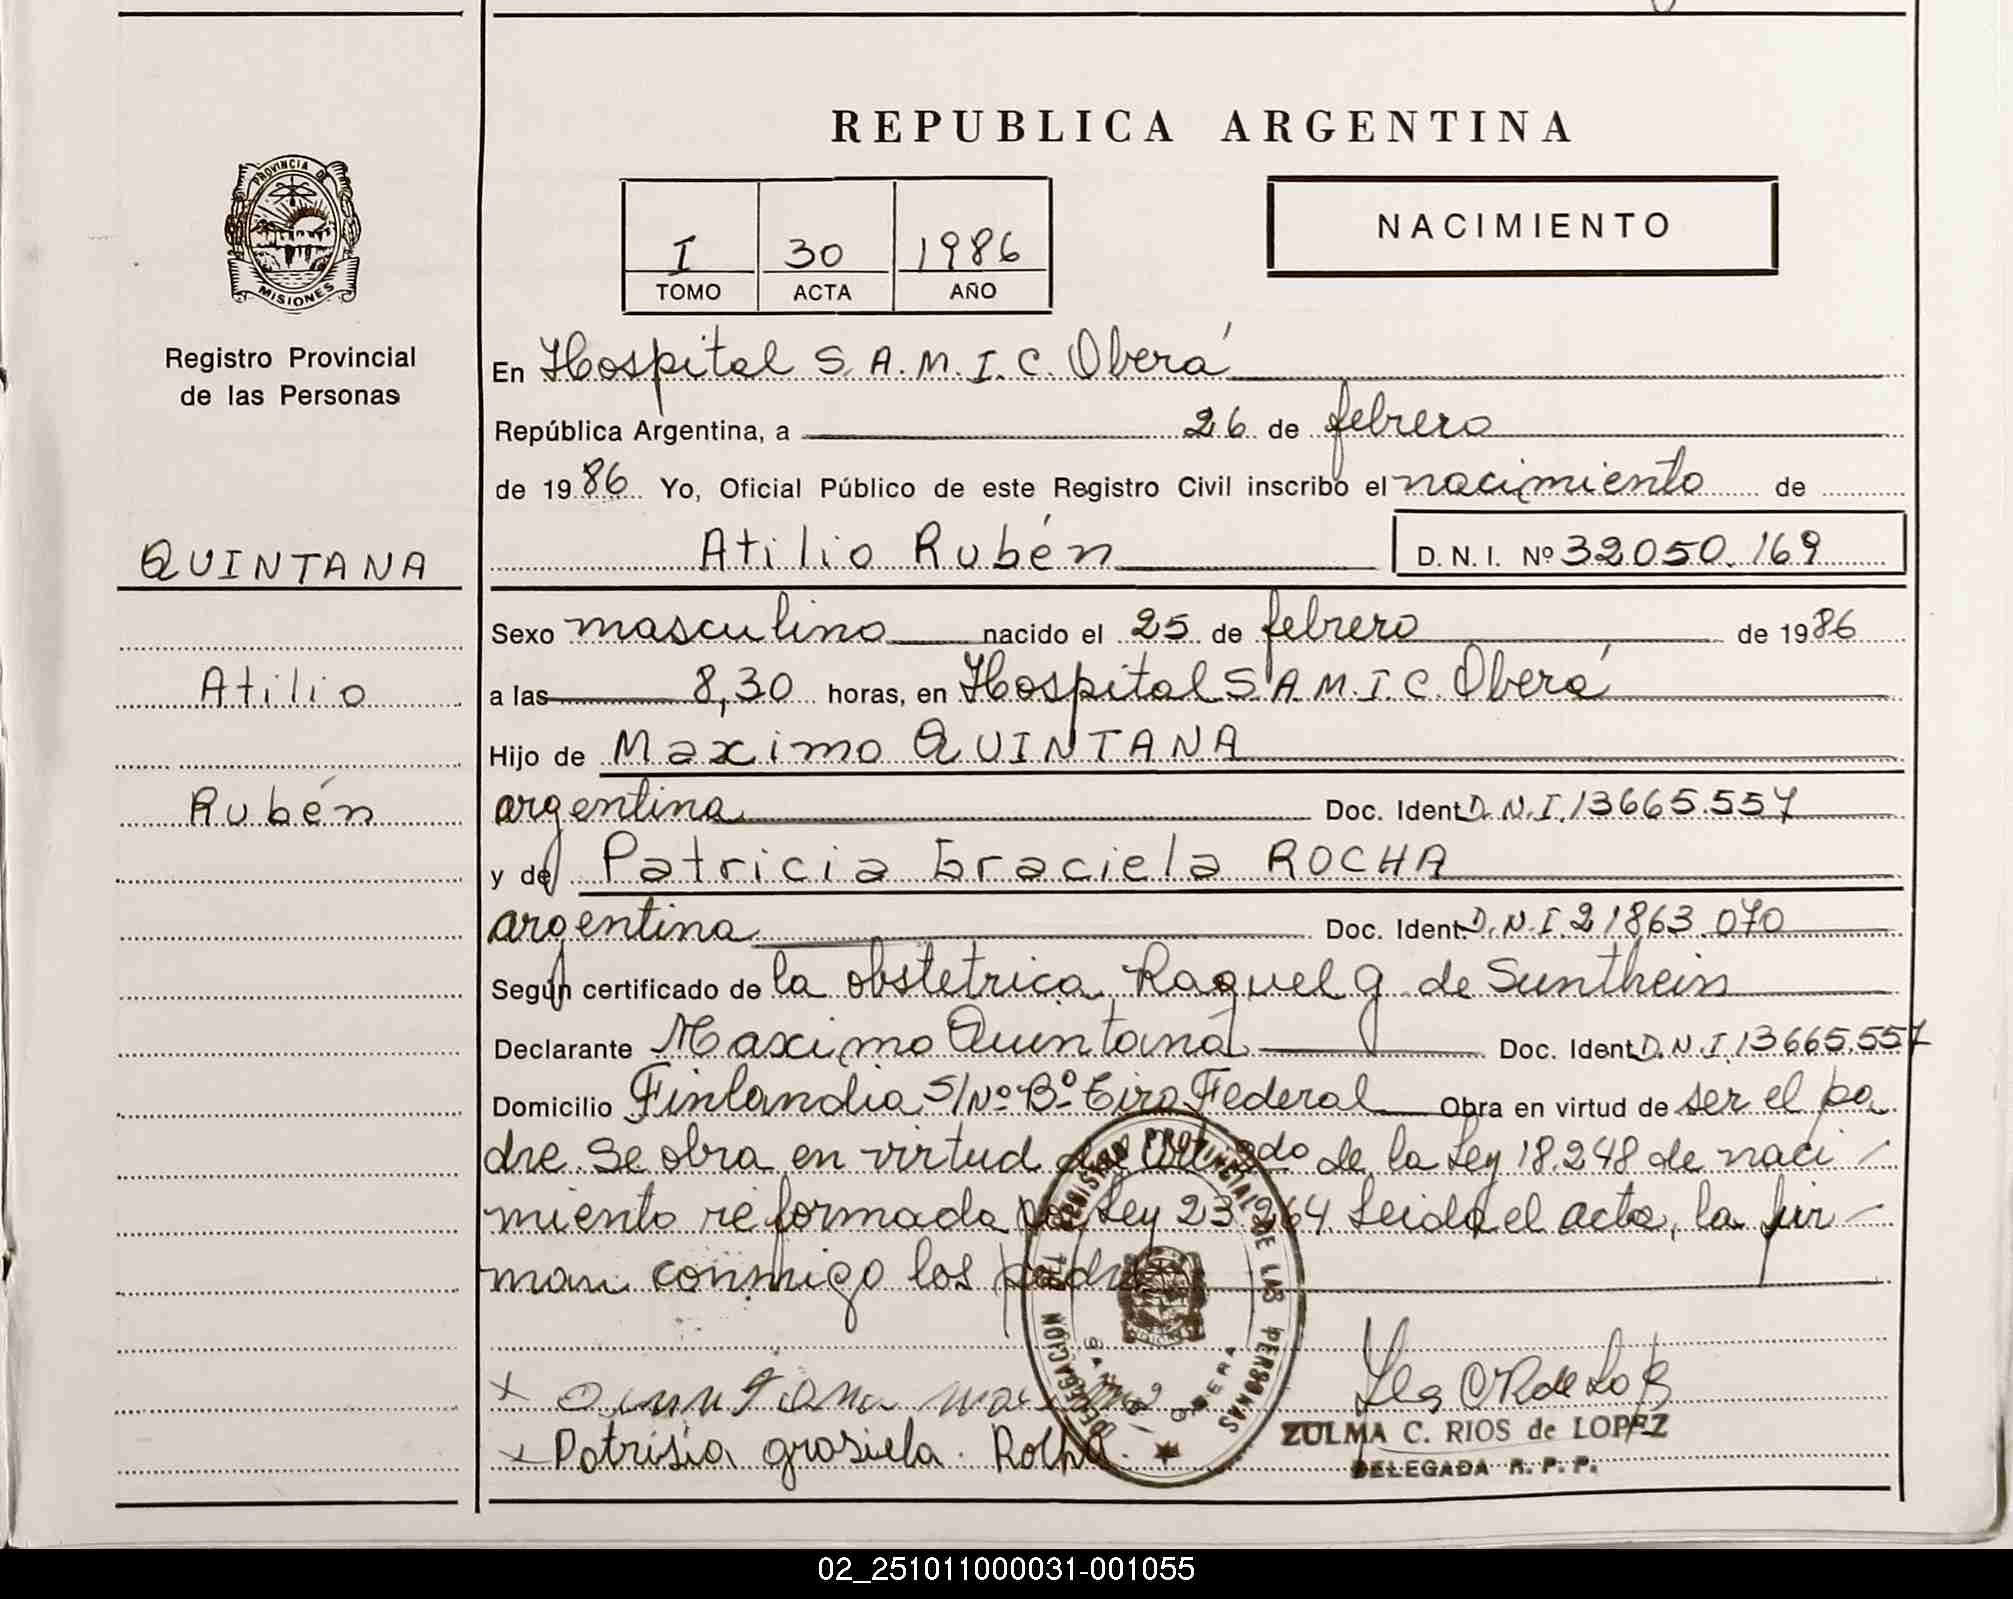 REPUBLICA ARGENTINA
PROVINCIA DE
MISIONES
Registro Provincial
de las Personas
I 30 1986
TOMO ACTA AÑO
NACIMIENTO
En Hospital S.A.M.I.C. Oberá
República Argentina, a 26 de febrero
de 1986 Yo, Oficial Público de este Registro Civil inscribo el nacimiento de
QUINTANA
Atilio Rubén D.N.I. Nº 32050.169
Sexo masculino nacido el 25 de febrero de 1986
Atilio
a las 8,30 horas, en Hospital S.A.M.I.C. Oberá
Hijo de Maximo QUINTANA
Rubén
argentina Doc. Ident. D.N.I. 13665.557
y de Patricia Graciela ROCHA
argentina Doc. Ident. D.N.I. 21863.070
Según certificado de la obstetrica Raquel G de Sunthein
Declarante Maximo Quintana Doc. Ident. D.N.I. 13665.557
Domicilio Finlandia S/Nº Bº Tiro Federal Obra en virtud de ser el pa
dre. Se obra en virtud de la Ley 18.248 de naci
miento reformada por Ley 23.264 Leida el acta, la fir
man conmigo los padres
x Quintana
x Patrisia grasiela. Rocha.
REGISTRO PROVINCIAL DE LAS PERSONAS
DELEGACION
OBERA
ZULMA C. RIOS de LOPEZ
DELEGADA R. P. P.
02_251011000031-001055